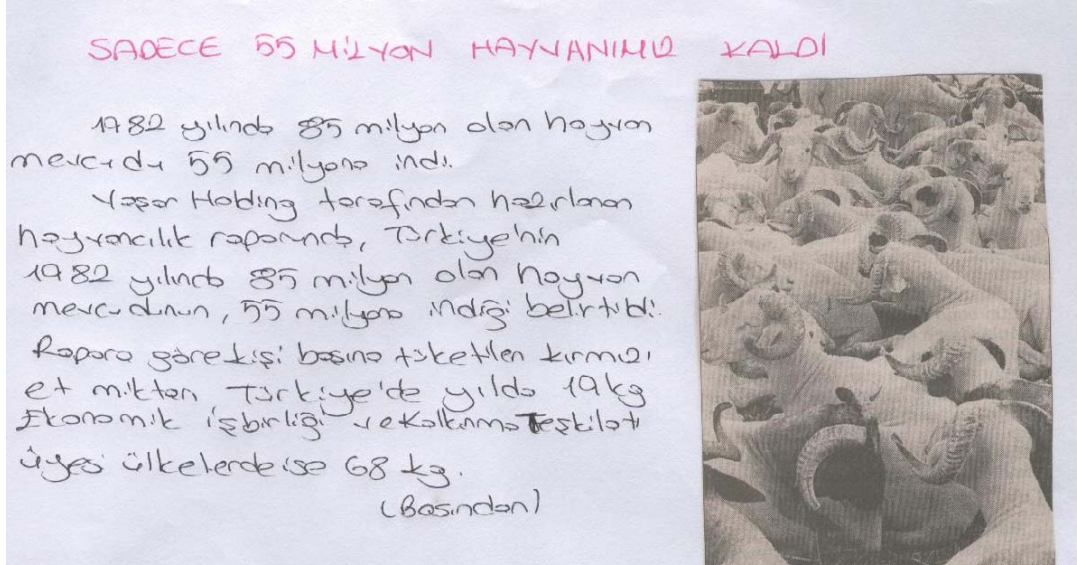 SADECE 55 MİLYON HAYVANIMIZ KALDI
1982 yılında 85 milyon olan hayvan
mevcudu 55 milyona indi.
Yaşar Holding tarafından hazırlanan
hayvancılık raporunda, Türkiye'nin
1982 yılında 85 milyon olan hayvan
mevcudunun, 55 milyona indiği belirtildi.
Rapora göre kişi başına tüketilen kırmızı
et miktarı Türkiye'de yılda 19 kg
Ekonomik işbirliği ve Kalkınma Teşkilatı
üyesi ülkelerde ise 68 kg.
(Basından)